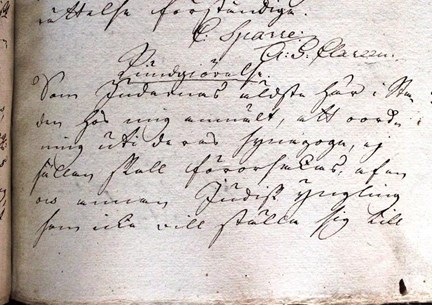 rättelse förständiga.
C. Sparre.
Kundgiörelse.
Som Judarnas äldste här i Sta
den hos mig anmält, att oord
ning uti deras Synagoga, ej
sällan skall förorsakas, af en
annan Judisk yngling
som icke vill ställa sig till